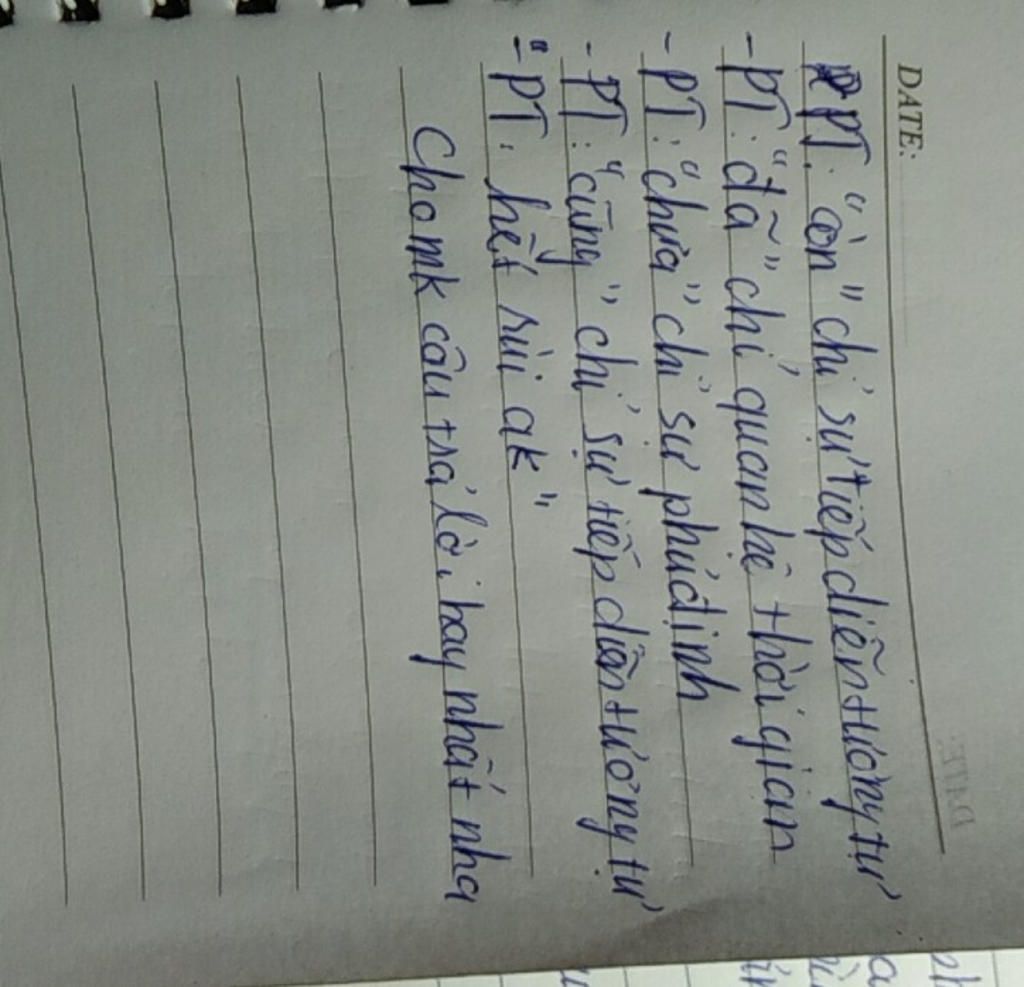 DATE:
PT: "còn" chỉ sự tiếp diễn tương tự
- PT: "đã" chỉ quan hệ thời gian
- PT: "chưa" chỉ sự phủ định
- PT: "cũng" chỉ sự tiếp diễn tương tự
- "PT: hết rùi ak"
Cho mk câu trả lời hay nhất nha